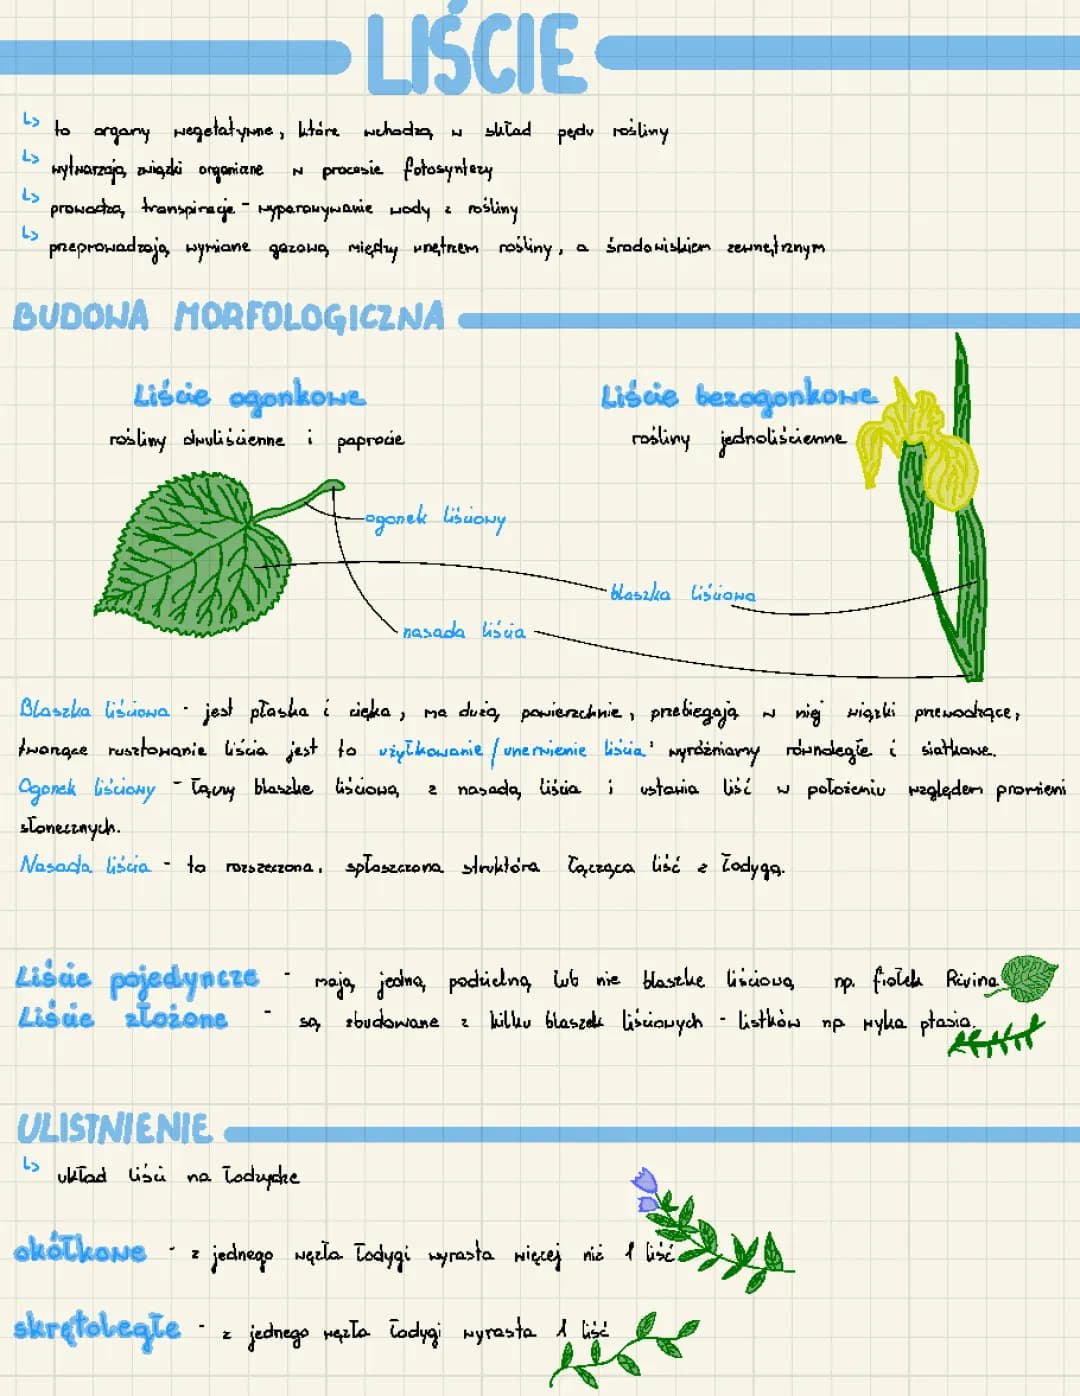 LIŚCIE
↳ to organy wegetatywne, które wchodzą w skład pędu rośliny
↳ wytwarzają związki organiczne w procesie fotosyntezy
↳ prowadzą transpiracje - wyparowywanie wody z rośliny
↳ przeprowadzają wymiane gazową między wnętrzem rośliny, a środowiskiem zewnętrznym
BUDOWA MORFOLOGICZNA
Liście ogonkowe
Liście bezogonkowe
rośliny dwuliścienne i paprocie
rośliny jednoliścienne
ogonek liściowy
blaszka liściowa
nasada liścia
Blaszka liściowa - jest płaska i cięka, ma dużą powierzchnie, przebiegają w niej wiązki przewodzące,
tworzące rusztowanie liścia jest to użyłkowanie/unerwienie liścia' wyróżniamy równoległe i siatkowe.
Ogonek liściowy - łączy blaszke liściową z nasadą liścia i ustawia liść w położeniu względem promieni
słonecznych.
Nasada liścia - to rozszeczona, spłaszczona struktóra łącząca liść z łodygą.
Liście pojedyncze - mają jedną podzielną lub nie blaszke liściową np. fiołek Rivina
Liście złożone - są zbudowane z kilku blaszek liściowych - listków np wyka ptasia.
ULISTNIENIE
↳ układ liści na łodydze
okółkowe - z jednego węzła łodygi wyrasta więcej niż 1 liść
skrętoległe - z jednego węzła łodygi wyrasta 1 liść